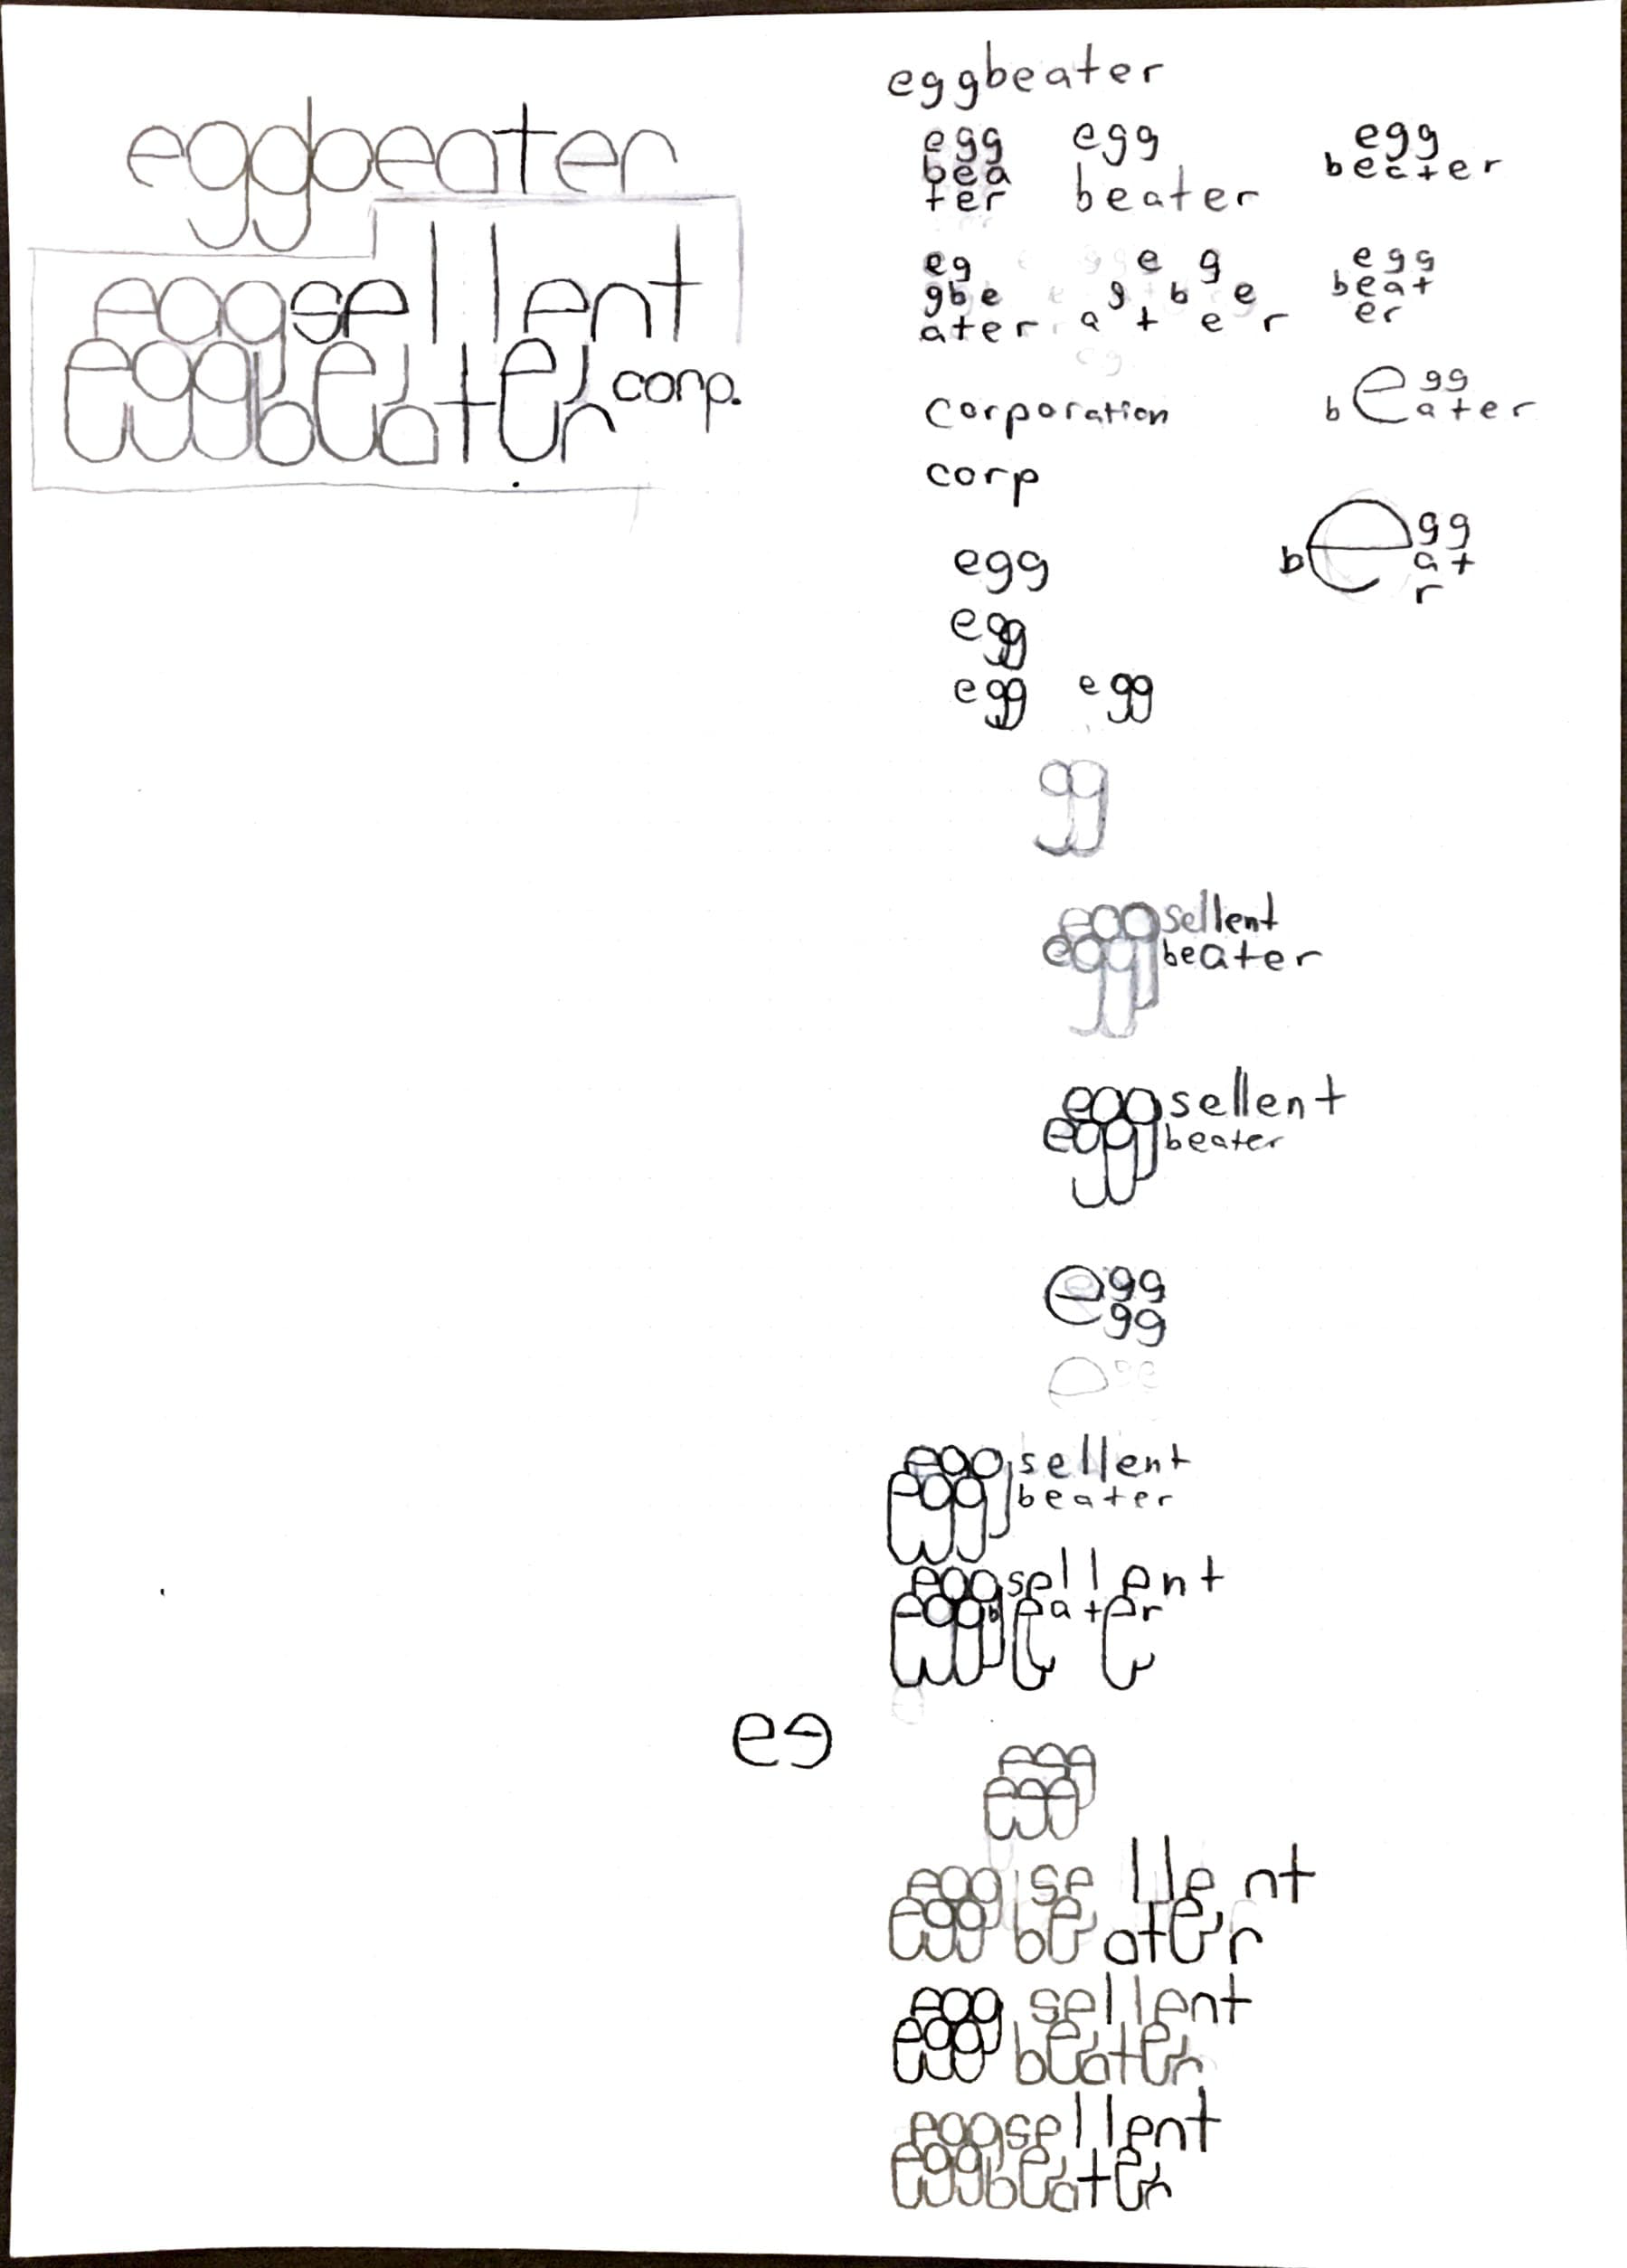 eggbeater
eggsellent
eggbeater corp.
eggbeater
egg
bea
ter
egg
beater
egg
beater
eg
gbe
ater
e g
g b e
a t e r
egg
beat
er
corporation
b e gg
ater
corp
b e gg
at
r
egg
egg
egg egg
gg
eggsellent
eggbeater
eggsellent
eggbeater
egg
gg
e
eggsellent
eggbeater
eggsellent
eggbeater
eggsellent
eggbeater
eggsellent
eggbeater
eggsellent
eggbeater